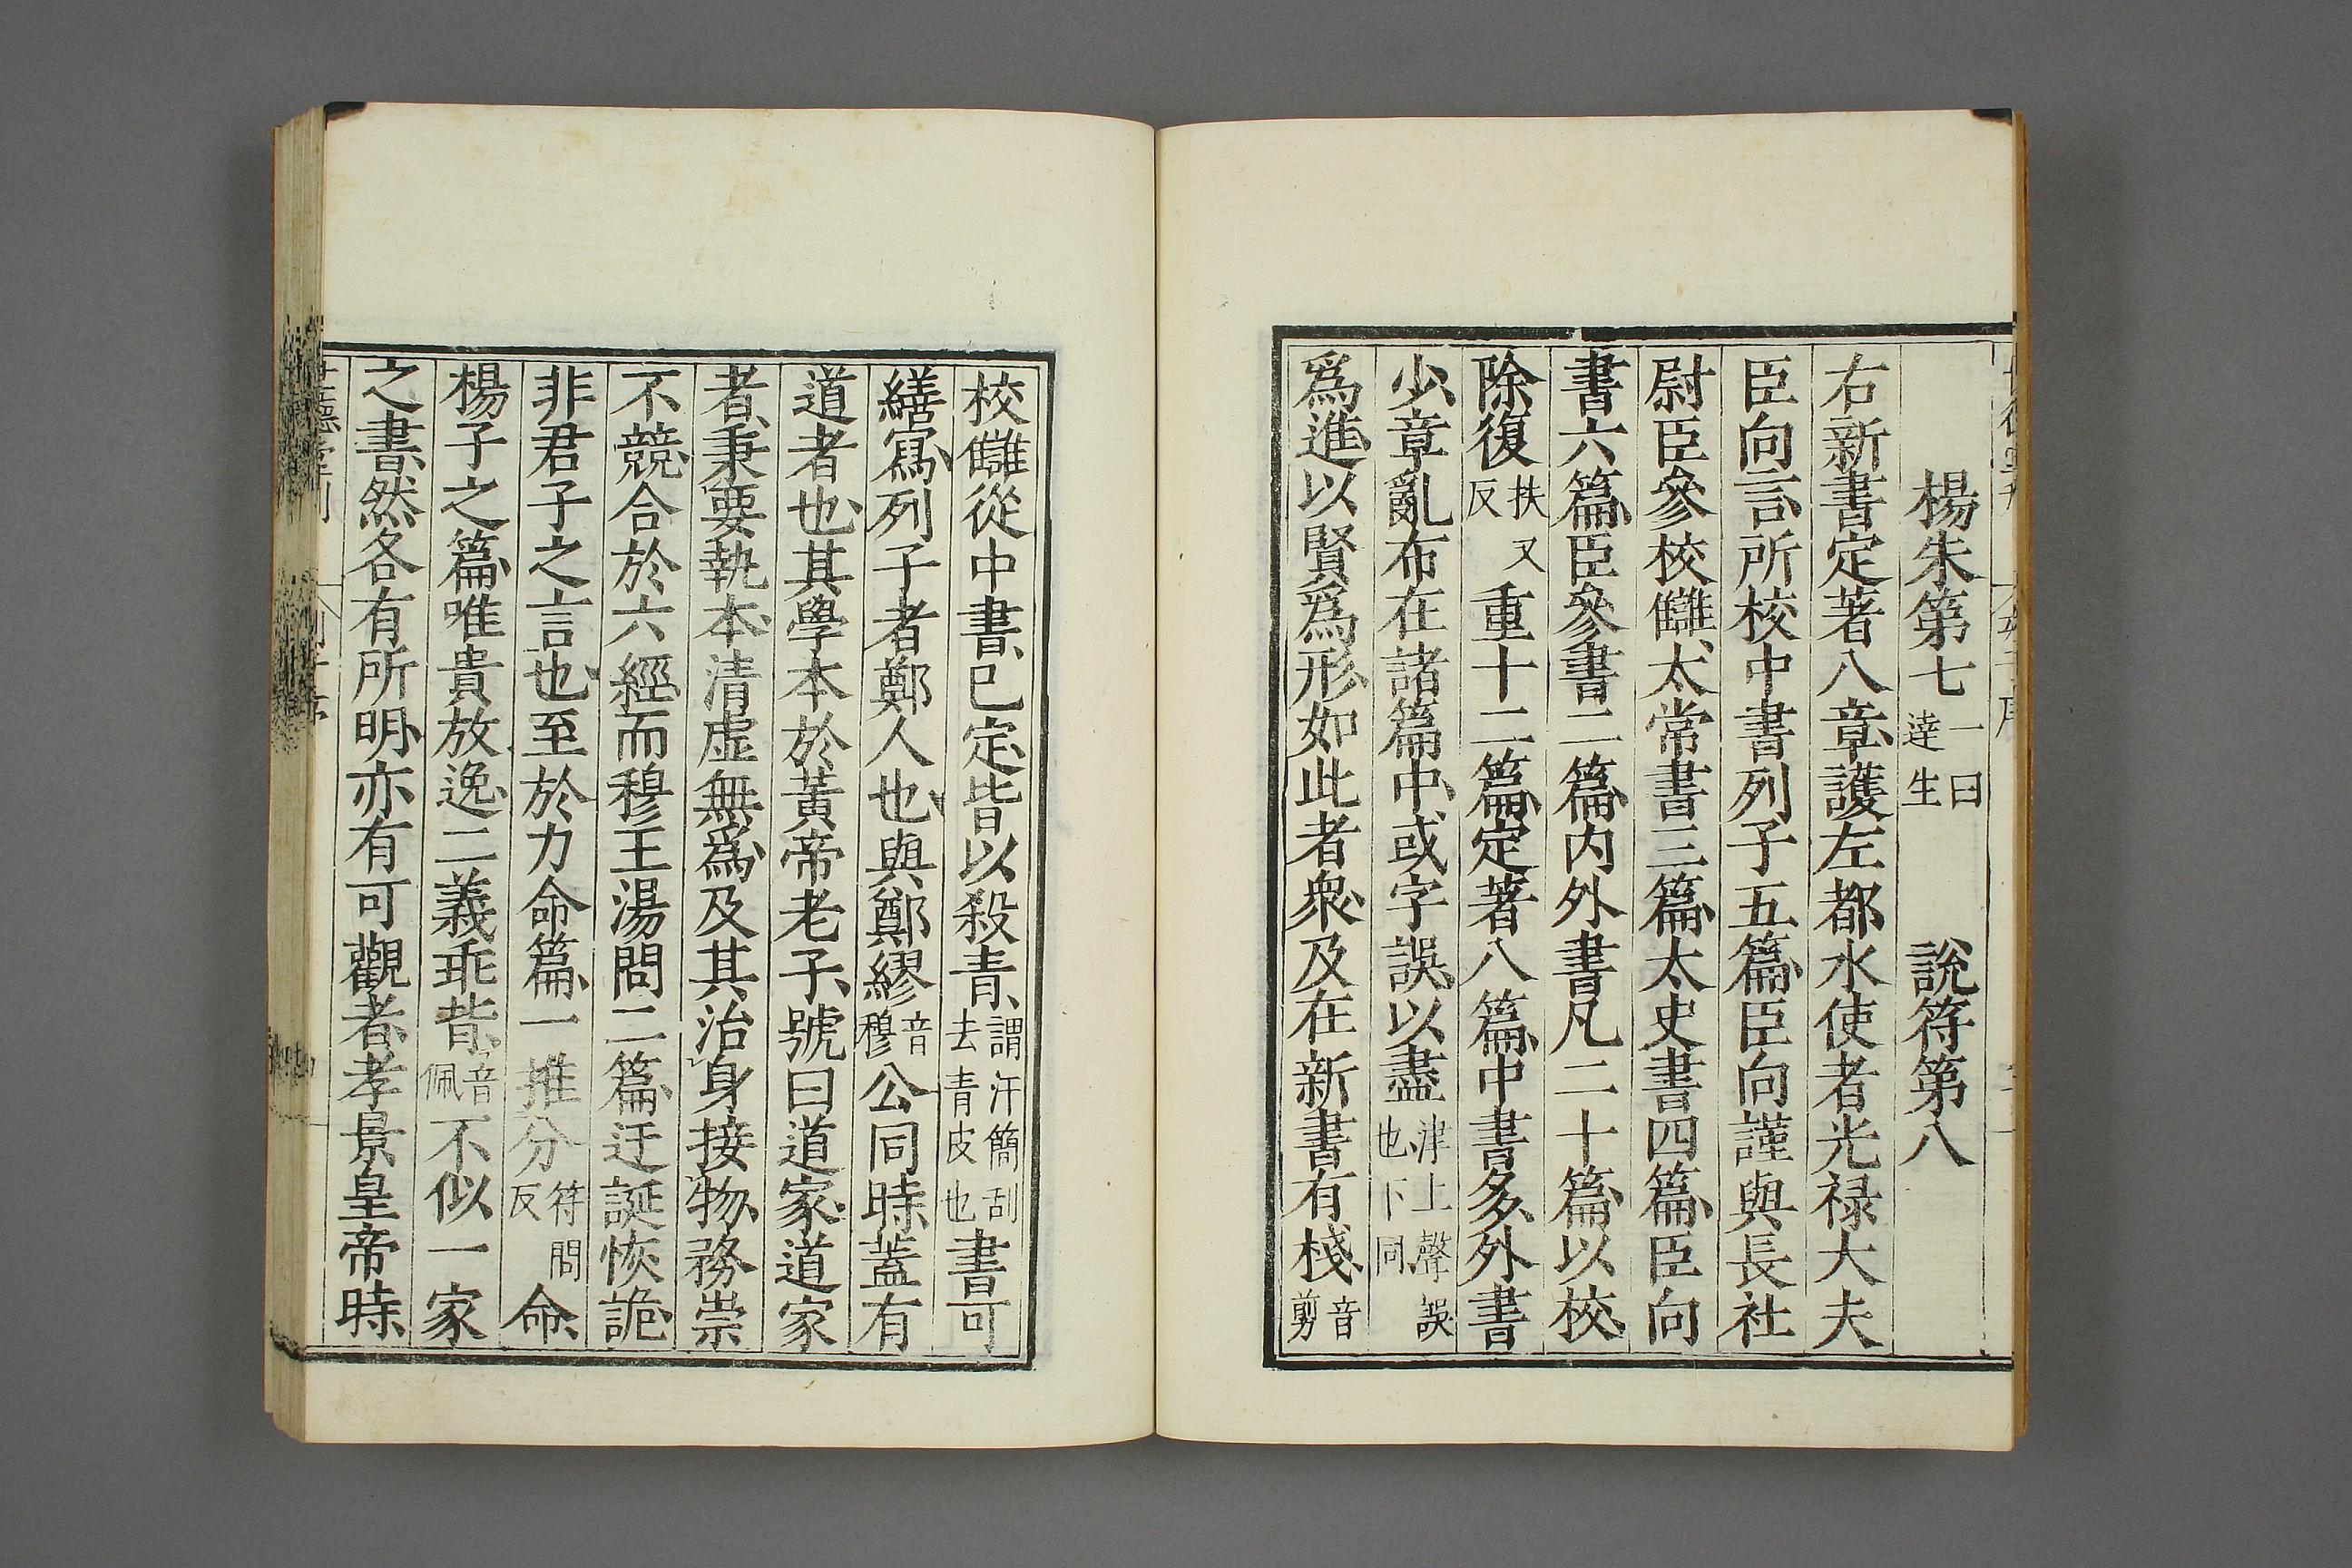 楊朱第七一曰達生 說符第八
右新書定著八章護左都水使者光禄大夫
臣向言所校中書列子五篇臣向謹與長社
尉臣參校讎太常書三篇太史書四篇臣向
書六篇臣參書二篇內外書凡二十篇以校
除復扶又反重十二篇定著八篇中書多外書
少章亂布在諸篇中或字誤以盡津上聲誤也下同
爲進以賢爲形如此者衆及在新書有棧音剪
校讎從中書已定皆以殺青謂汗簡刮去青皮也書可
繕寫列子者鄭人也與鄭繆音穆公同時蓋有
道者也其學本於黃帝老子號曰道家道家
者秉要執本清虛無爲及其治身接物務崇
不競合於六經而穆王湯問二篇迂誕恢詭
非君子之言也至於力命篇一推分符問反命
楊子之篇唯貴放逸二義乖背音佩不似一家
之書然各有所明亦有可觀者孝景皇帝時